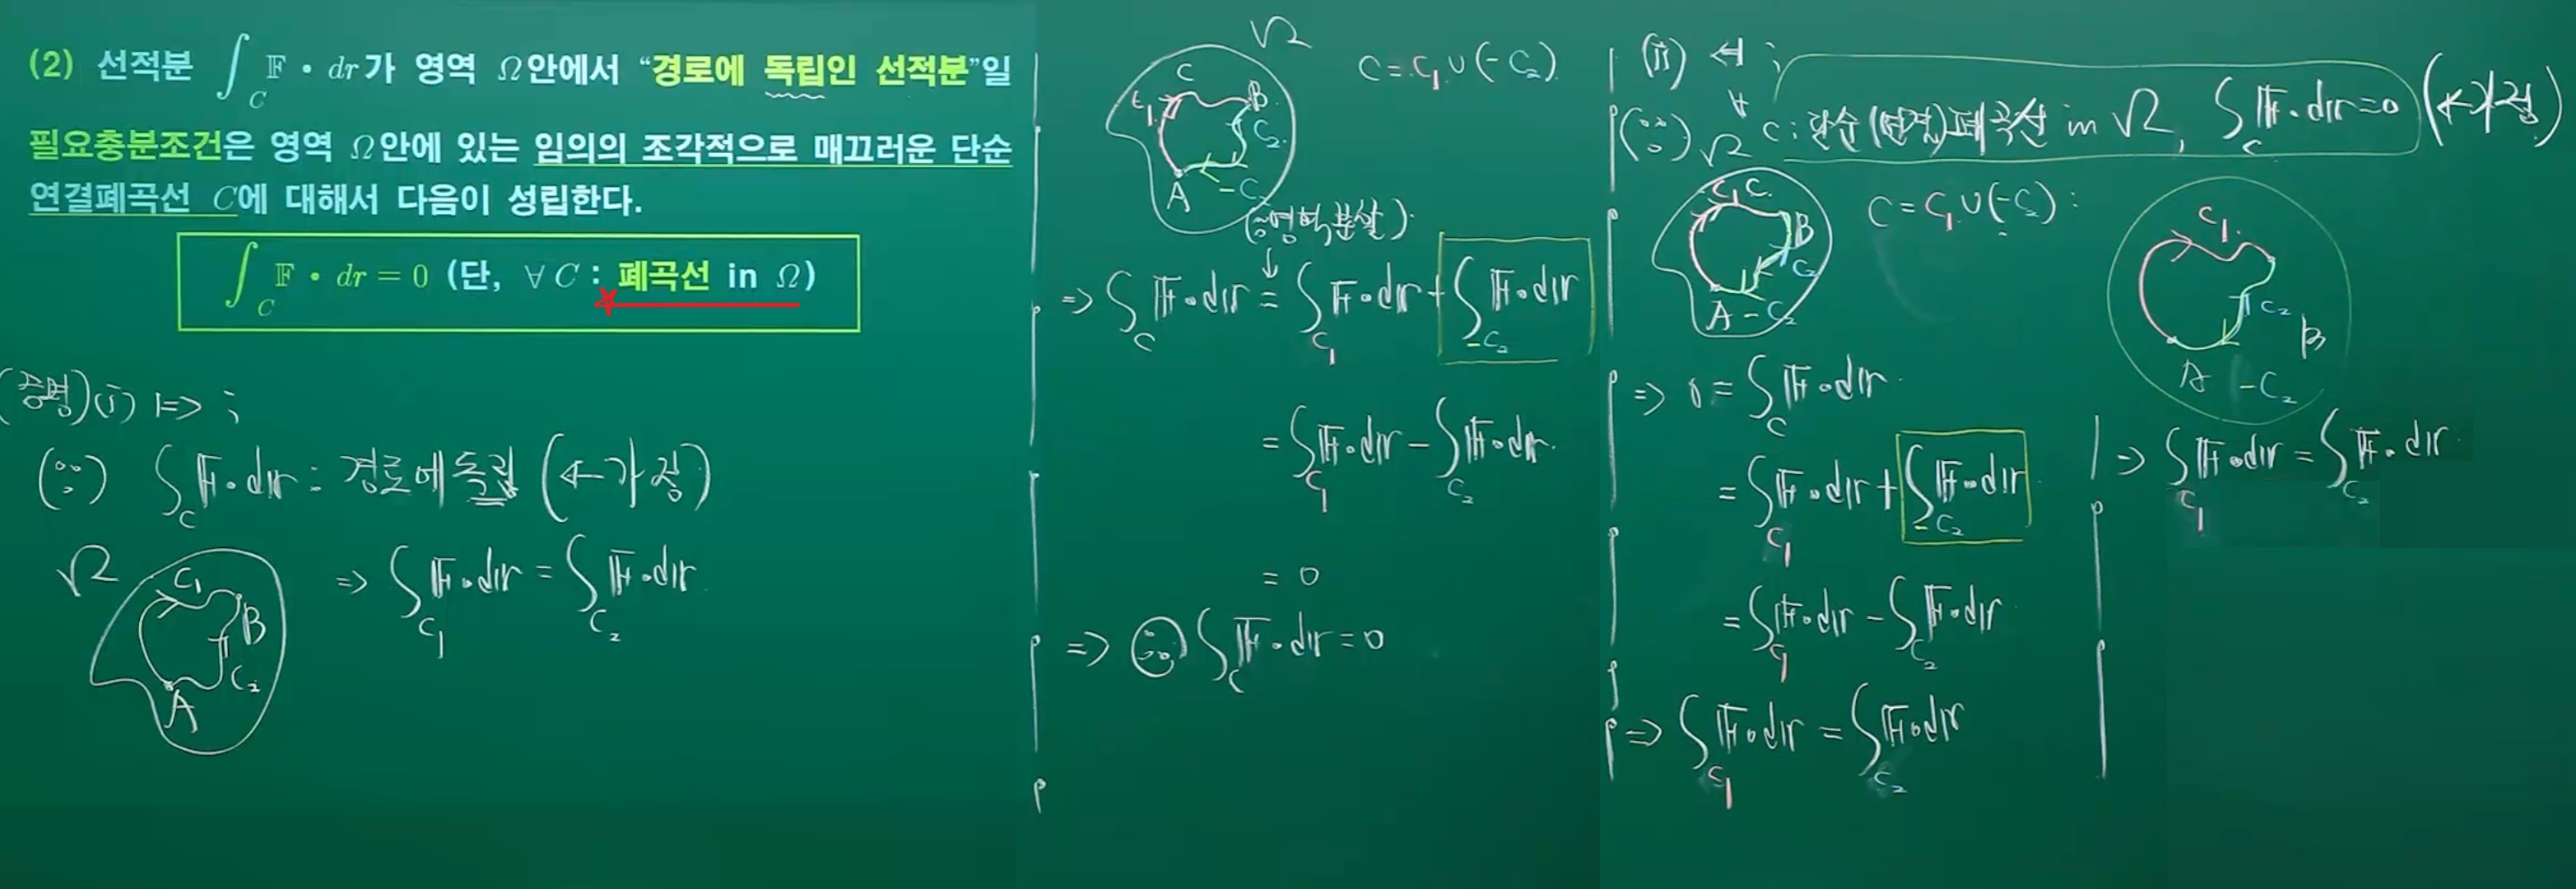 (2) 선적분 ∫_C 𝔽 • dr가 영역 Ω안에서 “경로에 독립인 선적분”일
필요충분조건은 영역 Ω안에 있는 임의의 조각적으로 매끄러운 단순
연결폐곡선 C에 대해서 다음이 성립한다.
∫_C 𝔽 • dr = 0 (단, ∀ C : 폐곡선 in Ω)
(증명)(i) ⊨> ;
(∵) ∫_C 𝔽•dr : 경로에 독립 (←가정)
Ω
C₁
B
C₂
A
=> ∫_C₁ 𝔽•dr = ∫_C₂ 𝔽•dr
Ω
C
C₁
B
C₂
-C₂
A
C = C₁ ∪ (-C₂)
(∵영역분할)
=> ∫_C 𝔽•dr = ∫_C₁ 𝔽•dr + ∫_-C₂ 𝔽•dr
= ∫_C₁ 𝔽•dr - ∫_C₂ 𝔽•dr
= 0
=> ∴ ∫_C 𝔽•dr = 0
(ii) <=| ;
(∵) ∀ C : 단순(연결)폐곡선 in Ω, ∫_C 𝔽•dr = 0 (←가정)
Ω
C₁ C
B
C₂
A -C₂
C = C₁ ∪ (-C₂) :
=> 0 = ∫_C 𝔽•dr
= ∫_C₁ 𝔽•dr + ∫_-C₂ 𝔽•dr
= ∫_C₁ 𝔽•dr - ∫_C₂ 𝔽•dr
=> ∫_C₁ 𝔽•dr = ∫_C₂ 𝔽•dr
C₁
C₂
B
A -C₂
=> ∫_C₁ 𝔽•dr = ∫_C₂ 𝔽•dr